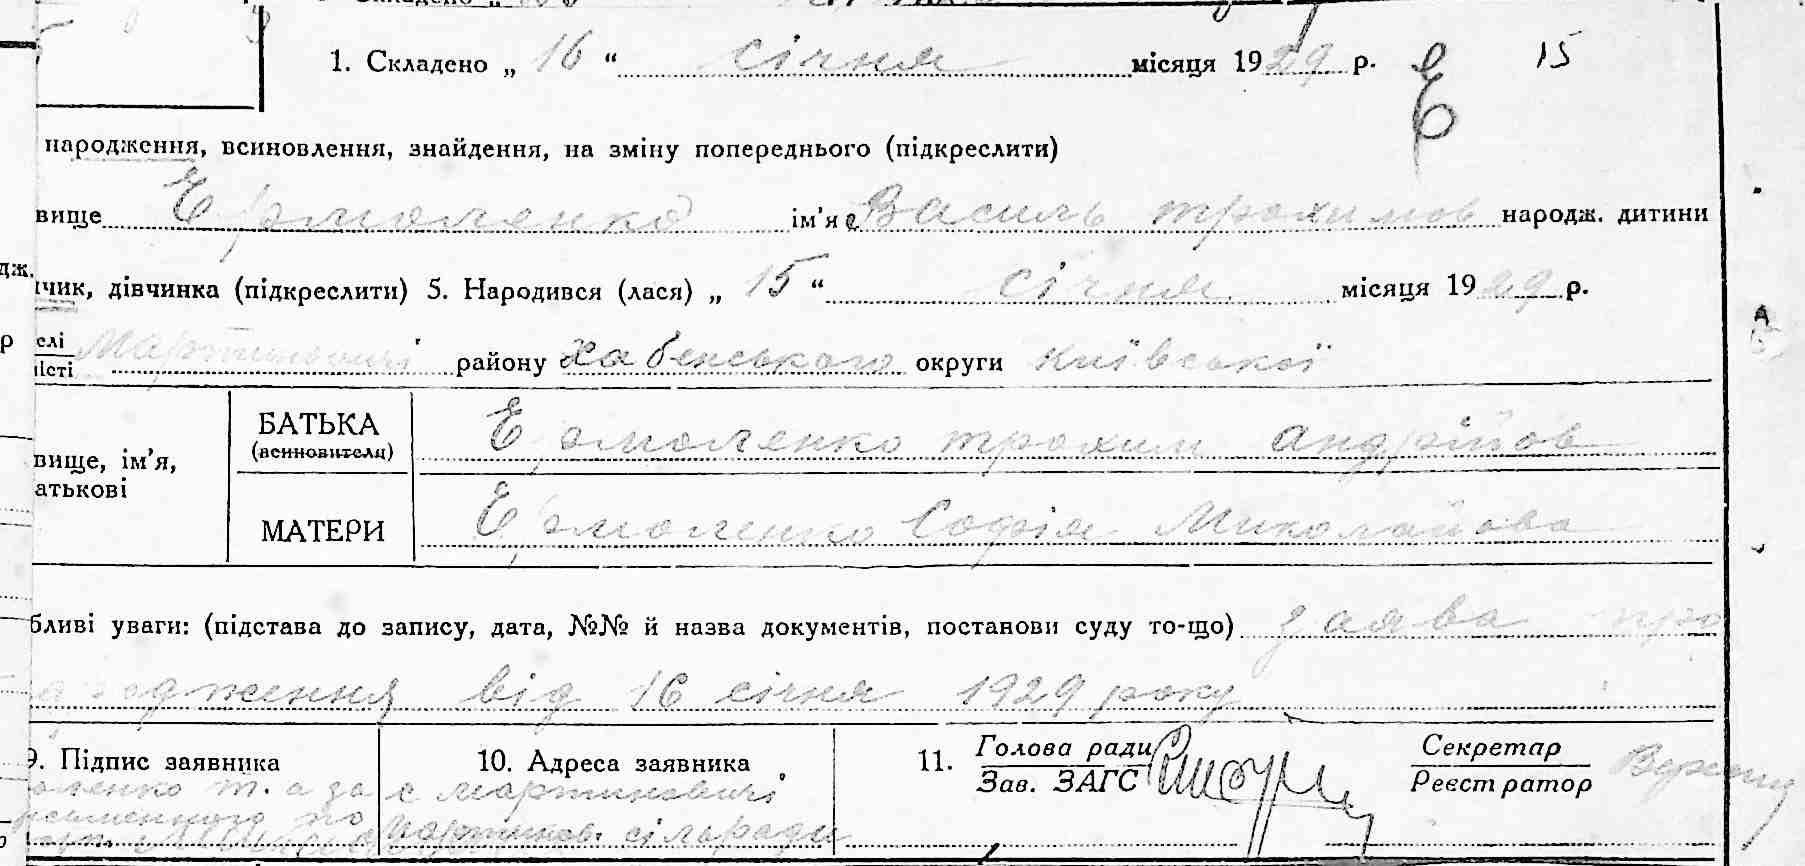 1. Складено „ 16 “ січня місяця 1929 р. Є 15
народження, всиновлення, знайдення, на зміну попереднього (підкреслити)
вище Єрмоленко ім'я Василь трохимов народж. дитини
дж.
чик, дівчинка (підкреслити) 5. Народився (лася) „ 15 “ січня місяця 1929 р.
р
елі Мартиновичі району Хабенського округи Київської
істі
БАТЬКА Єрмоленко трохим андрійов
(всиновителя)
вище, ім'я,
атькові
МАТЕРИ Єрмоленко Софія Миколайова
бливі уваги: (підстава до запису, дата, №№ й назва документів, постанови суду то-що) заява про
народження від 16 січня 1929 року
9. Підпис заявника 10. Адреса заявника 11. Голова ради Секретар
Зав. ЗАГС Реєстратор
оленко т. а за с мартиновичі
письменного по мартинов. сільради